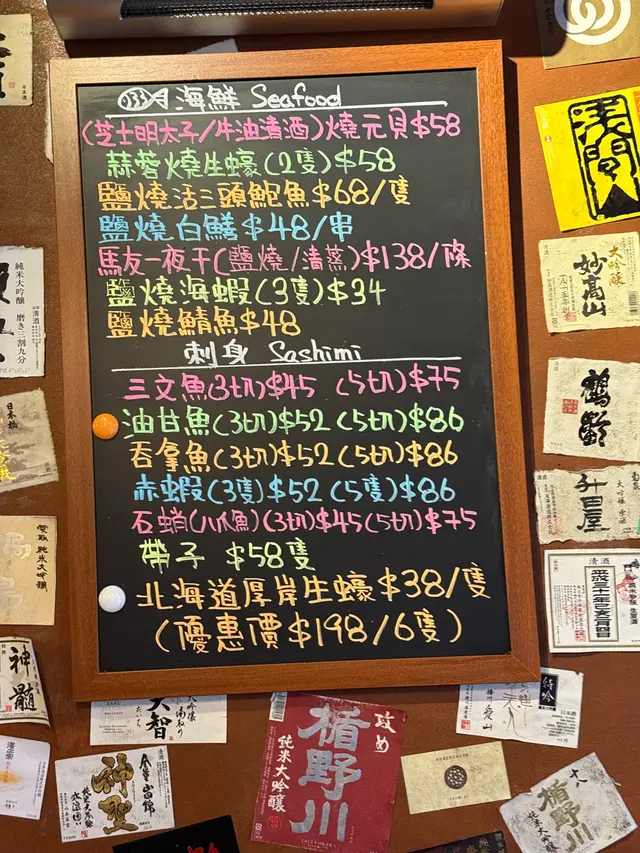 海鮮 Seafood
(芝士明太子/牛油清酒)燒元貝$58
蒜蓉燒生蠔(2隻)$58
鹽燒活三頭鮑魚$68/隻
鹽燒白鱔$48/串
馬友一夜干(鹽燒/清蒸)$138/條
鹽燒海蝦(3隻)$34
鹽燒鯖魚$48
刺身 Sashimi
三文魚(3切)$45 (5切)$75
油甘魚(3切)$52 (5切)$86
吞拿魚(3切)$52 (5切)$86
赤蝦(3隻)$52 (5隻)$86
石蛸(八爪魚)(3切)$45(5切)$75
帶子 $58隻
北海道厚岸生蠔$38/隻
(優惠價$198/6隻)
浅間山
大吟醸
妙高山
純米大吟醸 磨き三割九分
鶴齢
清酒
平成三十一年
神髄
大智
攻め
楯野川
純米大吟醸
神聖
日本酒
楯野川
純米大吟醸